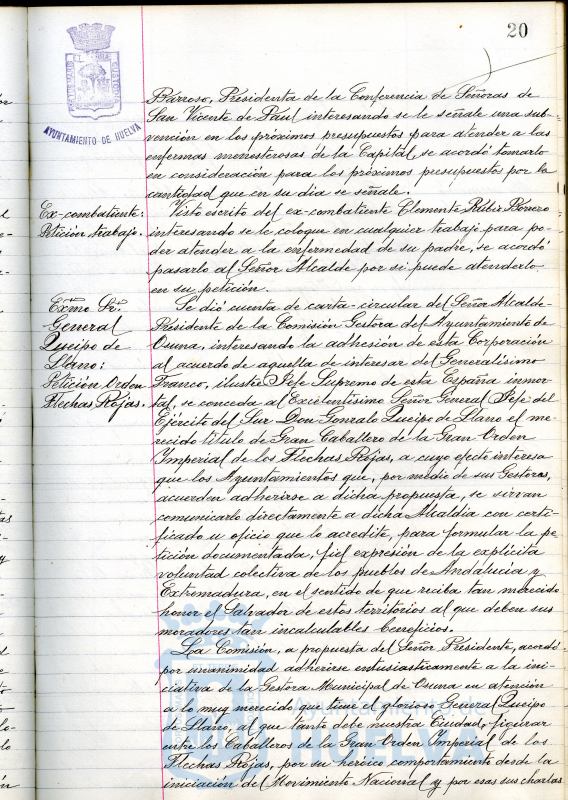 20
AYUNTAMIENTO DE HUELVA
Barroso, Presidenta de la Conferencia de Señoras de
San Vicente de Paul interesando se le señale una sub-
vención en los próximos presupuestos para atender a las
enfermas menesterosas de la Capital, se acordó tomarlo
en consideración para los próximos presupuestos por la
cantidad que en su dia se señale.
Ex-combatiente:
Petición trabajo.
Visto escrito del ex-combatiente Clemente Romero
interesando se le coloque en cualquier trabajo para po-
der atender a la enfermedad de su padre, se acordó
pasarlo al Señor Alcalde por si puede atenderlo
en su petición.
Exmo Sr.
General
Queipo de
Llano:
Petición Orden
Flechas Rojas.
Se dió cuenta de carta-circular del Señor Alcalde-
Presidente de la Comisión Gestora del Ayuntamiento de
Osuna, interesando la adhesión de esta Corporación
al acuerdo de aquella de interesar del Generalísimo
Franco, ilustre Jefe Supremo de esta España inmor-
tal, se conceda al Excelentísimo Señor General Jefe del
Ejército del Sur Don Gonzalo Queipo de Llano el me-
recido título de Gran Caballero de la Gran Orden
Imperial de las Flechas Rojas, a cuyo efecto interesa
que los Ayuntamientos que, por medio de sus Gestoras,
acuerden adherirse a dicha propuesta, se sirvan
comunicarlo directamente a dicha Alcaldia con certi-
ficado u oficio que lo acredite, para formular la pe-
tición documentada, fiel expresión de la explícita
voluntad colectiva de los pueblos de Andalucía y
Extremadura, en el sentido de que reciba tan merecido
honor el Salvador de estos territorios al que deben sus
moradores tan incalculables beneficios.
La Comisión, a propuesta del Señor Presidente, acordó
por unanimidad adherirse entusiasticamente a la ini-
ciativa de la Gestora Municipal de Osuna en atención
a lo muy merecido que tiene el glorioso General Queipo
de Llano, al que tanto debe nuestra Ciudad, figurar
entre los Caballeros de la Gran Orden Imperial de los
Flechas Rojas, por su heróico comportamiento desde la
iniciación del Movimiento Nacional y por esas sus charlas